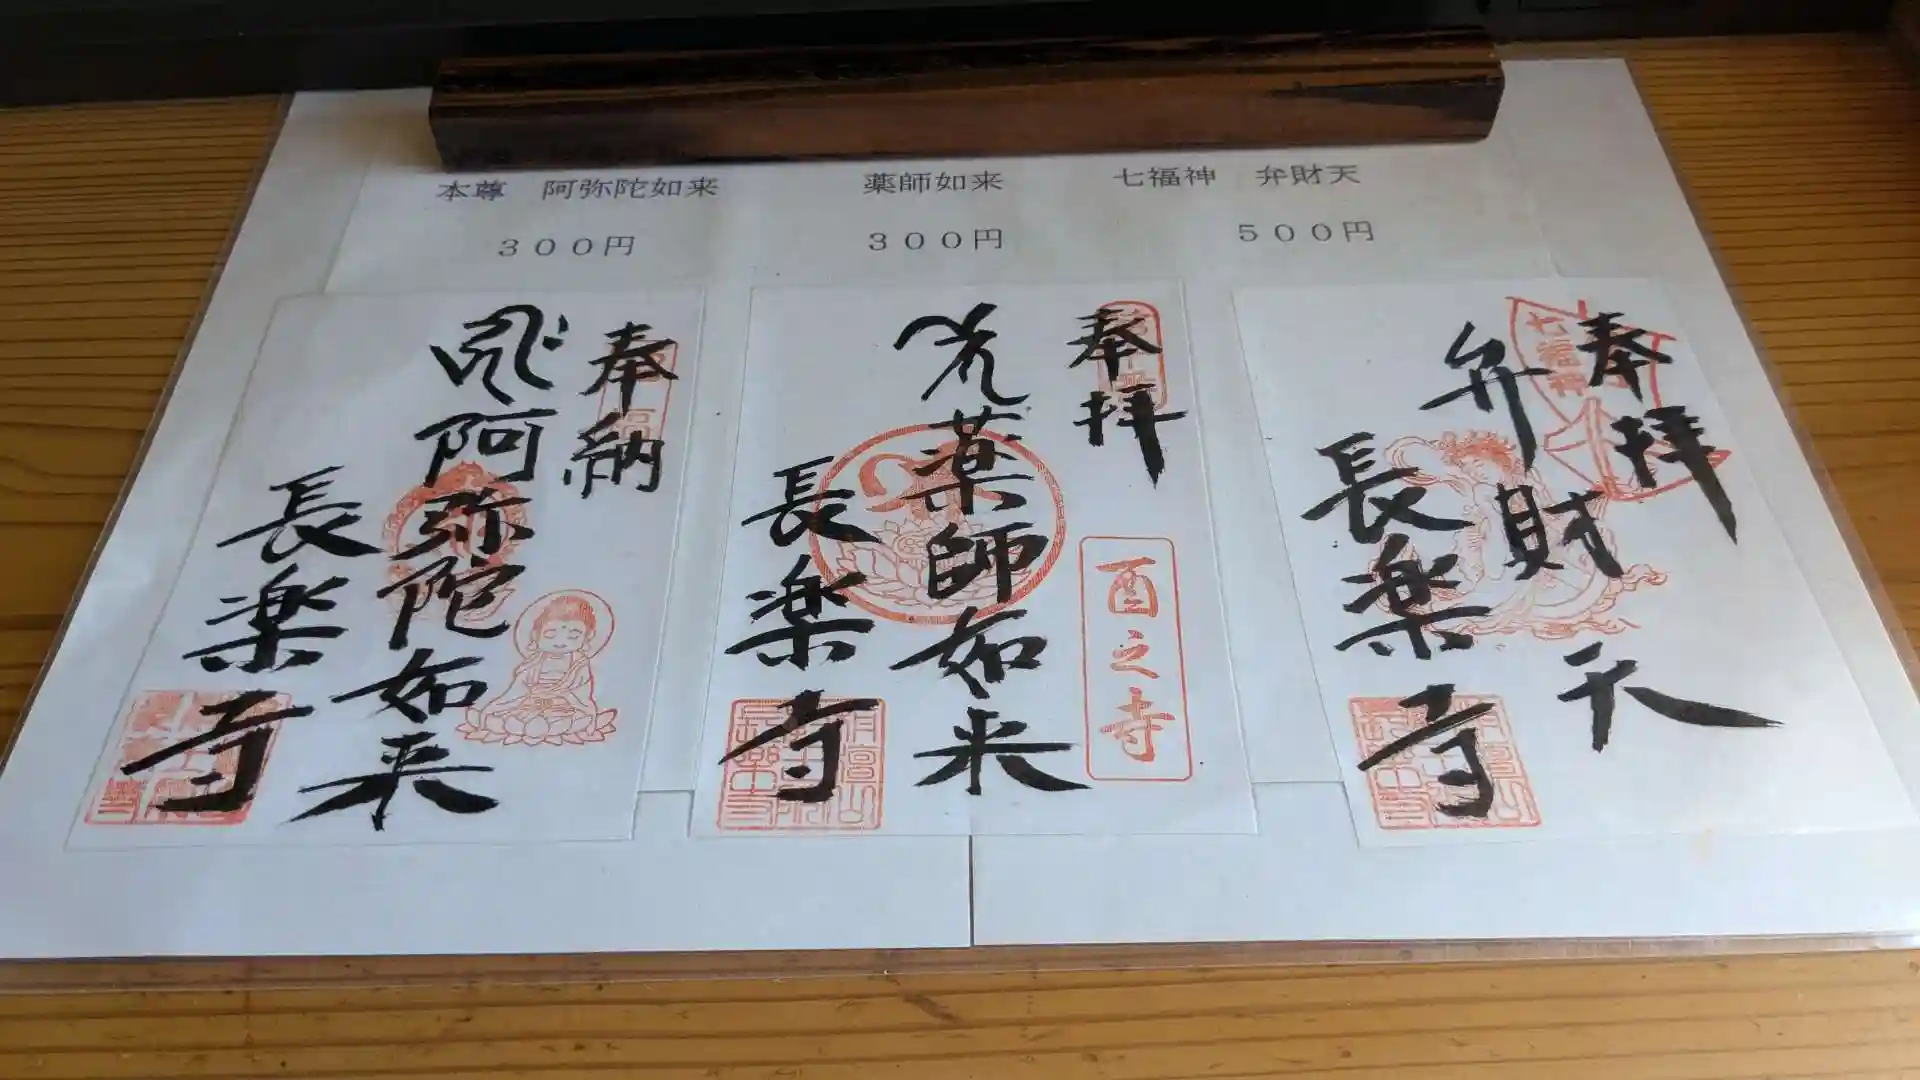 本尊　阿弥陀如来
３００円
薬師如来
３００円
七福神　弁財天
５００円
奉納
阿弥陀如来
長楽寺
奉拝
薬師如来
長楽寺
酉之寺
七福神
奉拝
弁財天
長楽寺